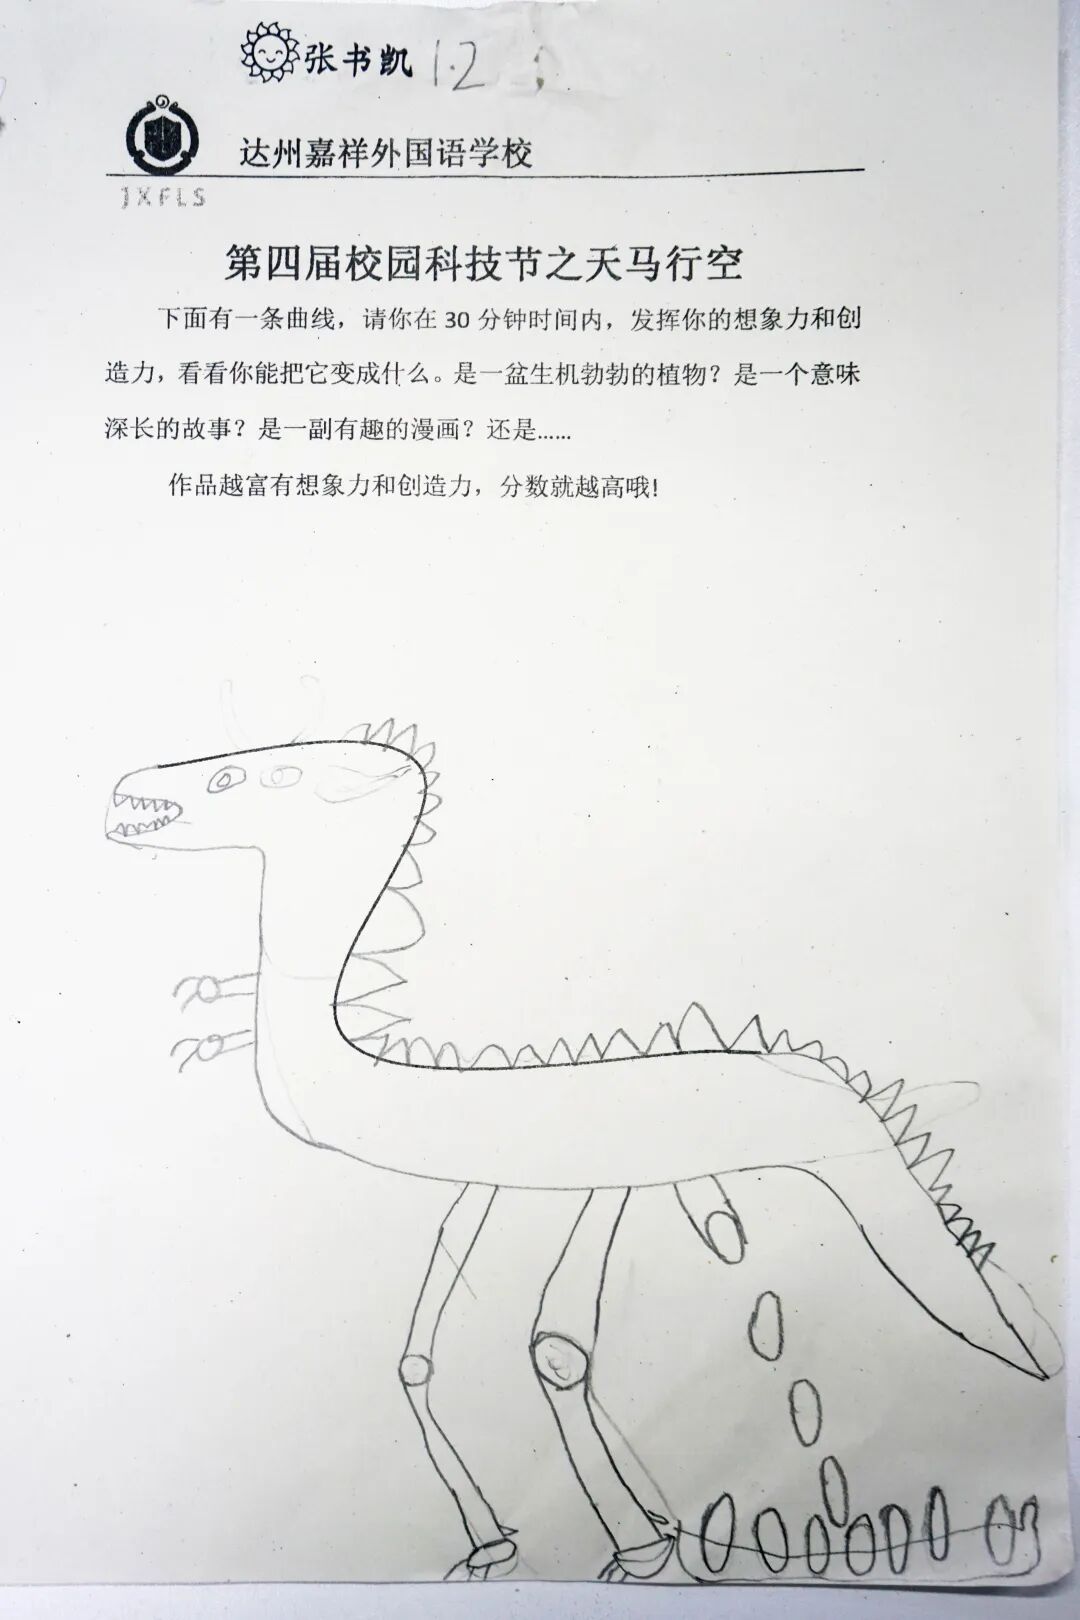 张书凯 1.2
达州嘉祥外国语学校
JXFLS
第四届校园科技节之天马行空
下面有一条曲线，请你在30分钟时间内，发挥你的想象力和创
造力，看看你能把它变成什么。是一盆生机勃勃的植物？是一个意味
深长的故事？是一副有趣的漫画？还是……
作品越富有想象力和创造力，分数就越高哦！